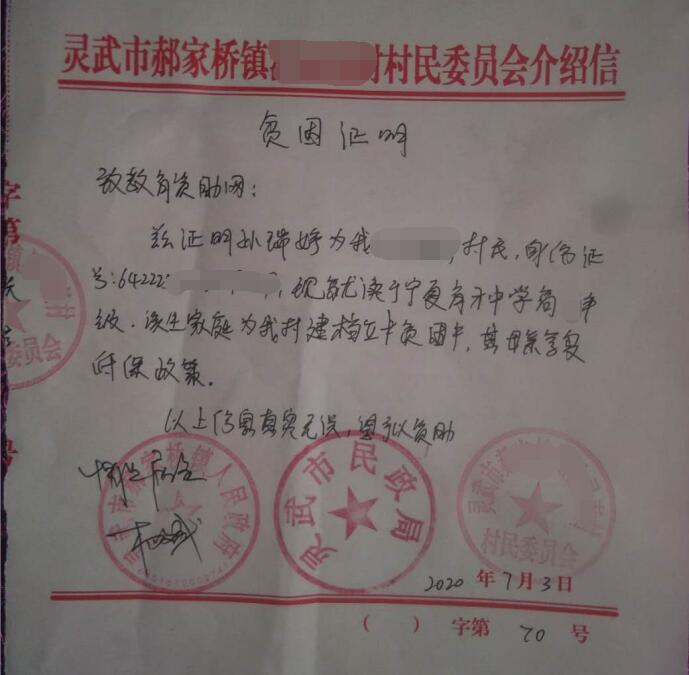 灵武市郝家桥镇 村村民委员会介绍信
贫困证明
致教育资助网:
兹证明孙瑞婷为我 ,村民,身份证
号:64222 ,现就读于宁夏育才中学高 年
级.该生家庭为我村建档立卡贫困户,其母亲享受
低保政策。
以上信息真实无误,望予以资助
情况属实
灵武市郝家桥镇人民政府
灵武市民政局
灵武市
村民委员会
2020年7月3日
( ) 字第 70 号
字第
号
委员会